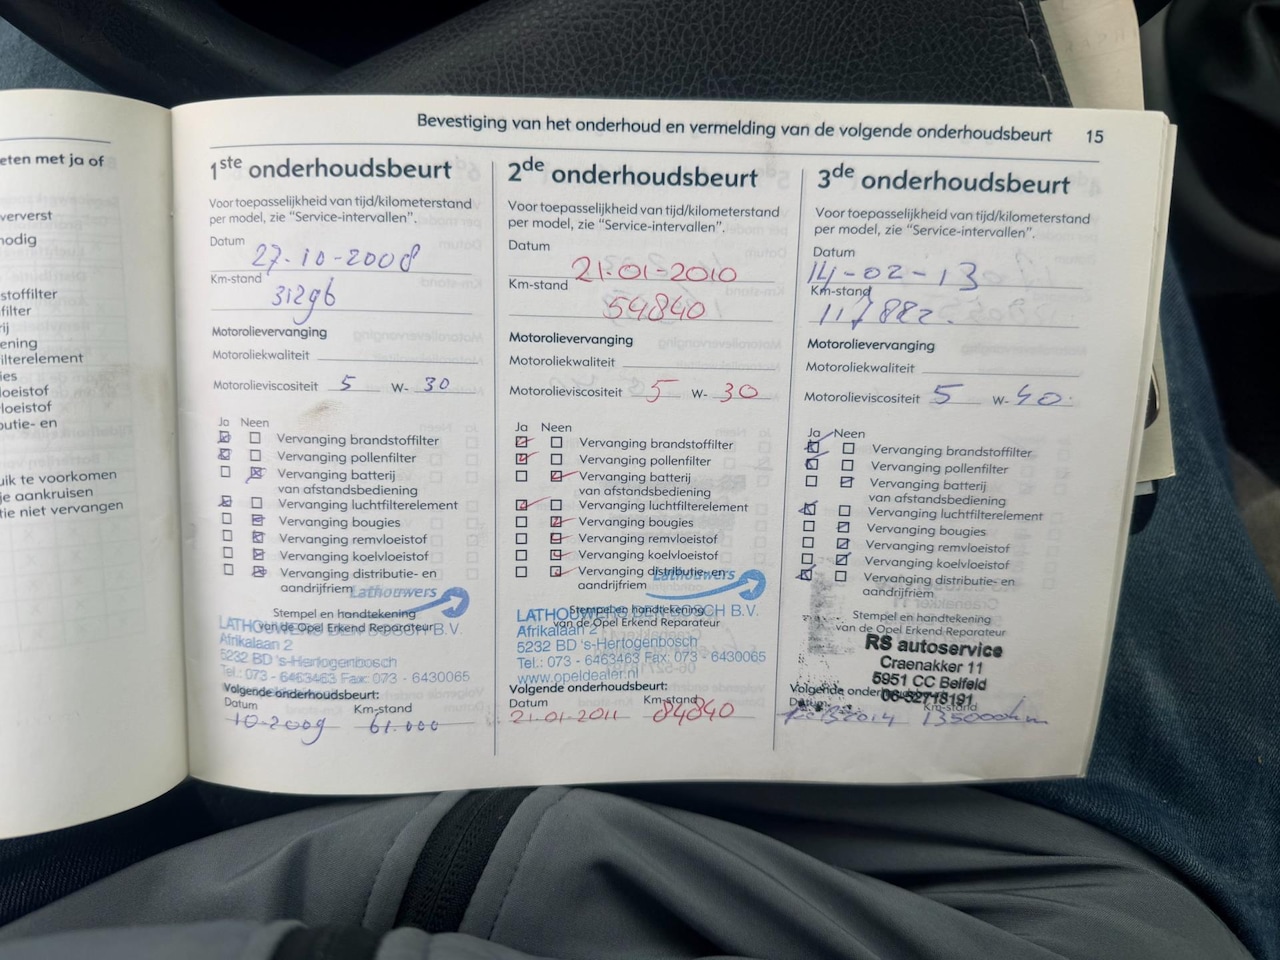 eten met ja of
ververst
nodig
stoffilter
filter
rij
ening
filterelement
ies
loeistof
vloeistof
butie- en
uik te voorkomen
je aankruisen
tie niet vervangen
Bevestiging van het onderhoud en vermelding van de volgende onderhoudsbeurt 15
1ste onderhoudsbeurt
Voor toepasselijkheid van tijd/kilometerstand
per model, zie "Service-intervallen".
Datum
27-10-2008
Km-stand
31296
Motorolievervanging
Motoroliekwaliteit
Motorolieviscositeit 5 W- 30
Ja Neen
Vervanging brandstoffilter
Vervanging pollenfilter
Vervanging batterij
van afstandsbediening
Vervanging luchtfilterelement
Vervanging bougies
Vervanging remvloeistof
Vervanging koelvloeistof
Vervanging distributie- en
aandrijfriem
Lathouwers
Stempel en handtekening
van de Opel Erkend Reparateur
LATHOUWERS DEN BOSCH B.V.
Afrikalaan 2
5232 BD 's-Hertogenbosch
Tel.: 073 - 6463463 Fax: 073 - 6430065
Volgende onderhoudsbeurt:
Datum Km-stand
10-2009 61.000
2de onderhoudsbeurt
Voor toepasselijkheid van tijd/kilometerstand
per model, zie "Service-intervallen".
Datum
21-01-2010
Km-stand
54840
Motorolievervanging
Motoroliekwaliteit
Motorolieviscositeit 5 W- 30
Ja Neen
Vervanging brandstoffilter
Vervanging pollenfilter
Vervanging batterij
van afstandsbediening
Vervanging luchtfilterelement
Vervanging bougies
Vervanging remvloeistof
Vervanging koelvloeistof
Vervanging distributie- en
aandrijfriem
Lathouwers
Stempel en handtekening
van de Opel Erkend Reparateur
LATHOUWERS DEN BOSCH B.V.
Afrikalaan 2
5232 BD 's-Hertogenbosch
Tel.: 073 - 6463463 Fax: 073 - 6430065
www.opeldealer.nl
Volgende onderhoudsbeurt:
Datum Km-stand
21-01-2011 84840
3de onderhoudsbeurt
Voor toepasselijkheid van tijd/kilometerstand
per model, zie "Service-intervallen".
Datum
14-02-13
Km-stand
117882.
Motorolievervanging
Motoroliekwaliteit
Motorolieviscositeit 5 W- 40
Ja Neen
Vervanging brandstoffilter
Vervanging pollenfilter
Vervanging batterij
van afstandsbediening
Vervanging luchtfilterelement
Vervanging bougies
Vervanging remvloeistof
Vervanging koelvloeistof
Vervanging distributie- en
aandrijfriem
Stempel en handtekening
van de Opel Erkend Reparateur
RS autoservice
Craenakker 11
5951 CC Belfeld
06-52715191
Volgende onderhoudsbeurt:
Datum Km-stand
2014 135000km